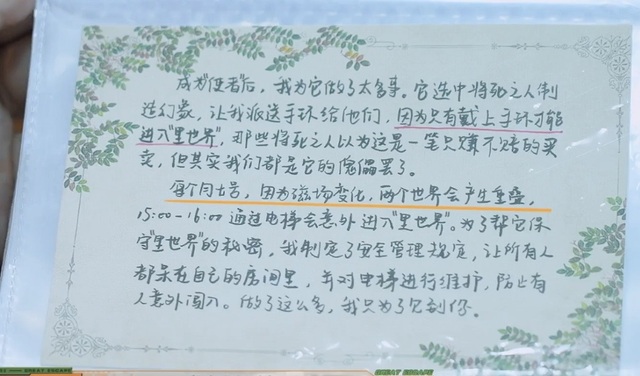 成为"使者"后，我为它做了太多事。它选中将死之人制
造幻象，让我派送手环给他们，因为只有戴上手环才能
进入"里世界"，那些将死之人以为这是一笔只赚不赔的买
卖，但其实我们都是它的傀儡罢了。
每个月七号，因为磁场变化，两个世界会产生重叠，
15:00-16:00通过电梯会意外进入"里世界"。为了帮它保
守"里世界"的秘密，我制定了安全管理规定，让所有人
都呆在自己的房间里，并对电梯进行维护，防止有
人意外闯入。做了这么多，我只为了见到你。
GREAT ESCAPE